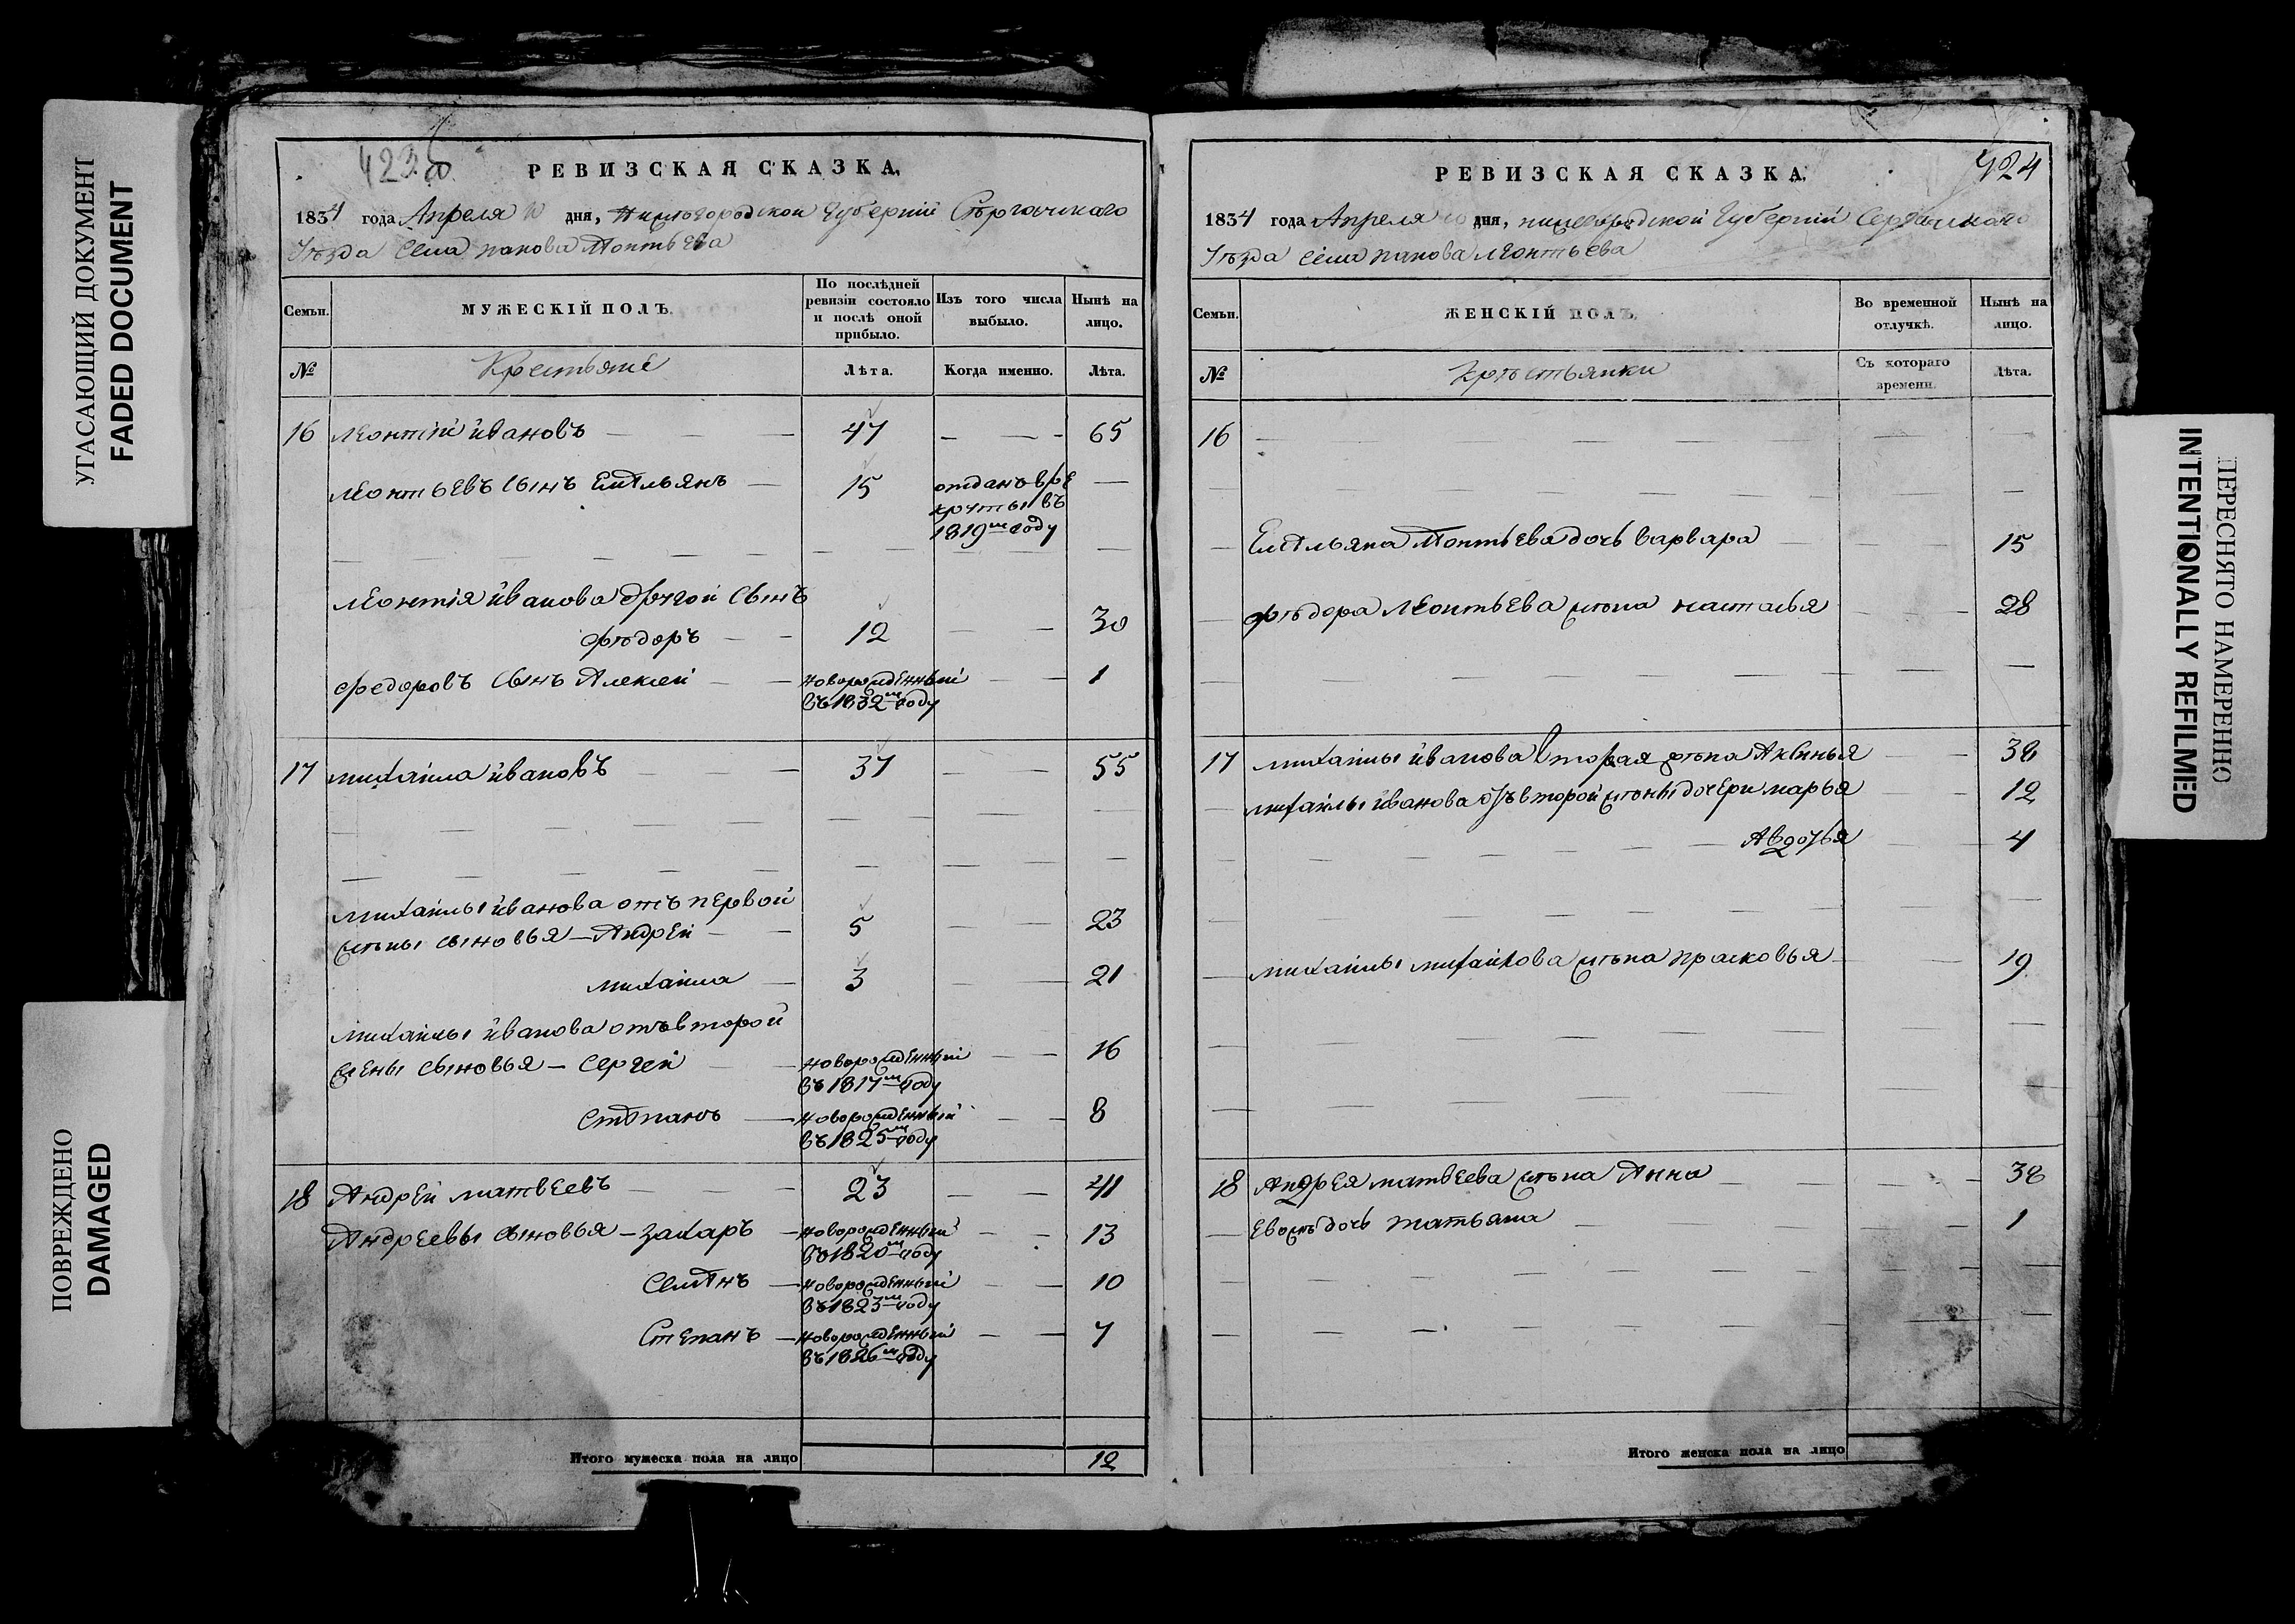 УГАСАЮЩИЙ ДОКУМЕНТ
FADED DOCUMENT
ПОВРЕЖДЕНО
DAMAGED
423 об.
РЕВИЗСКАЯ СКАЗКА.
1834 года Апреля 10 дня, Нижегородской Губернии Сергачскаго
Уѣзда Села панова Леонтьева
Семьи.
МУЖЕСКІЙ ПОЛЪ.
По послѣдней ревизіи состояло и послѣ оной прибыло.
Изъ того числа выбыло.
Нынѣ на лицо.
№
Крестьяне
Лѣта.
Когда именно.
Лѣта.
16 Леонтій ивановъ 47 65
Леонтьевъ сынъ Емельянъ 15 отданъ в ре
круты въ
1819м году
Леонтія иванова другой сынъ
Фѣдоръ 12 30
Федоровъ сынъ Алексей новорожденный 1
въ 1832м году
17 михаила ивановъ 37 55
михаилы иванова отъ первой
жѣны сыновья – Андрей 5 23
михаила 3 21
михаилы иванова отъ второй
жены сыновья – Сергей новорожденный 16
въ 1817м году
Степанъ новорожденный 8
въ 1825м году
18 Андрей матвеевъ 23 41
Андреевы сыновья – захаръ новорожденный 13
въ 1820м году
Семенъ новорожденный 10
въ 1823м году
Степанъ новорожденный 7
въ 1826м году
Итого мужеска пола на лицо 12
424
РЕВИЗСКАЯ СКАЗКА.
1834 года Апреля 10 дня, нижегородской Губерніи Сергачскаго
Уѣзда села панова леонтьева
Семьи.
ЖЕНСКІЙ ПОЛЪ.
Во временной отлучкѣ.
Нынѣ на лицо.
№
Крѣстьянки
Съ котораго времени.
Лѣта.
16
Емельяна Леонтьева дочь варвара 15
Фѣдора Леонтьева жѣна настасья 28
17 михаилы иванова вторая жѣна Аксинья 38
михаилы иванова отъ второй жѣны дочери марья 12
Авдотья 4
михаилы михайлова жѣна прасковья 19
18 Андрея матвеева жѣна Анна 38
Евожъ дочь татьяна 1
Итого женска пола на лицо
ПЕРЕСНЯТО НАМЕРЕННО
INTENTIONALLY REFILMED